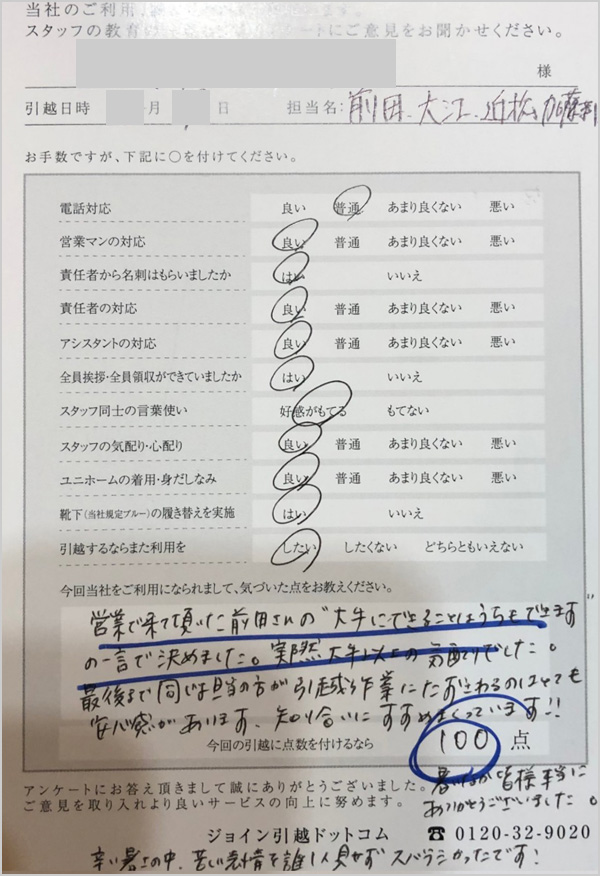 当社のご利用、
スタッフの教育 ートにご意見をお聞かせください。
様
引越日時 月 日 担当名: 前田、大江、近松、加藤
お手数ですが、下記に○を付けてください。
電話対応 良い 普通 あまり良くない 悪い
営業マンの対応 良い 普通 あまり良くない 悪い
責任者から名刺はもらいましたか はい いいえ
責任者の対応 良い 普通 あまり良くない 悪い
アシスタントの対応 良い 普通 あまり良くない 悪い
全員挨拶・全員領収ができていましたか はい いいえ
スタッフ同士の言葉使い 好感がもてる もてない
スタッフの気配り・心配り 良い 普通 あまり良くない 悪い
ユニホームの着用・身だしなみ 良い 普通 あまり良くない 悪い
靴下(当社規定ブルー)の履き替えを実施 はい いいえ
引越するならまた利用を したい したくない どちらともいえない
今回当社をご利用になられまして、気づいた点をお教えください。
営業で来て頂いた前田さんの"大手にできることはうちもできます"
の一言で決めました。実際大手以上の気配りでした。
最後まで同じ担当の方が引越作業にたずさわるのはとても
安心感があります、知り合いにすすめまくっています!!
今回の引越に点数を付けるなら 100 点
暑いなか皆様本当に
ありがとうございました。
アンケートにお答え頂きまして誠にありがとうございました。
ご意見を取り入れより良いサービスの向上に努めます。
ジョイン引越ドットコム ☎ 0120-32-9020
辛い暑さの中、苦しい表情を誰1人見せずスバラシかったです!